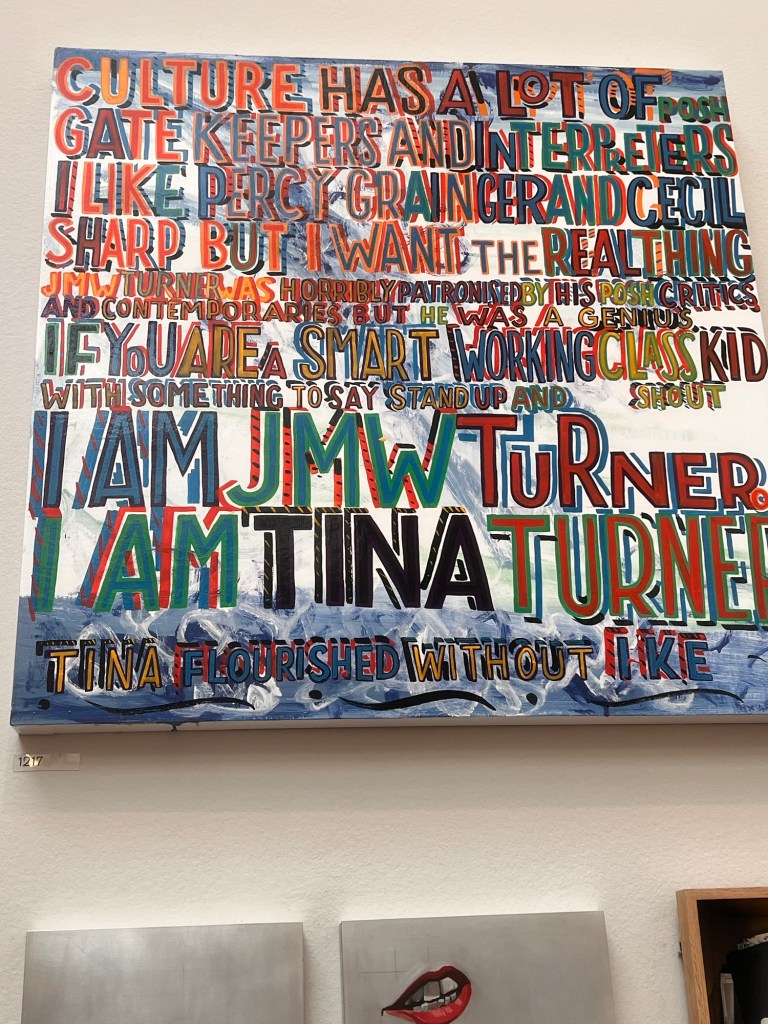 CULTURE HAS A LOT OF POSH
GATE KEEPERS AND INTERPRETERS
I LIKE PERCY GRAINGER AND CECIL
SHARP BUT I WANT THE REAL THING
JMW TURNER WAS HORRIBLY PATRONISED BY HIS POSH CRITICS
AND CONTEMPORARIES BUT HE WAS A GENIUS
IF YOU ARE A SMART WORKING CLASS KID
WITH SOMETHING TO SAY STAND UP AND SHOUT
I AM JMW TURNER.
I AM TINA TURNER
TINA FLOURISHED WITHOUT IKE
1217